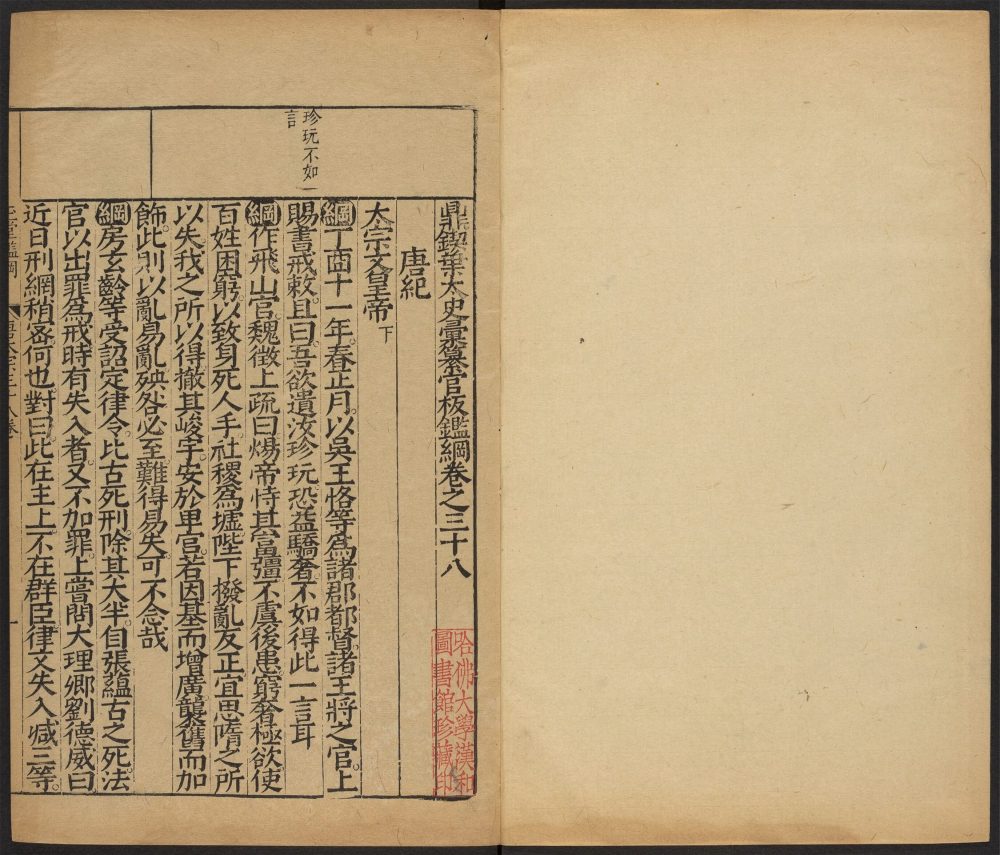 鼎鍥葉太史彙纂官板鑑綱卷之三十八
唐紀
太宗文皇帝下
綱丁酉十一年春正月以吳王恪等爲諸郡都督諸王將之官上
賜書戒敕且曰吾欲遺汝珍玩恐益驕奢不如得此一言耳
綱作飛山宮魏徵上疏曰煬帝恃其富彊不虞後患窮奢極欲使
百姓困窮以致身死人手社稷爲墟陛下撥亂反正宜思隋之所
以失我之所以得撤其峻宇安於卑宮若因基而增廣襲舊而加
飾此則以亂易亂殃咎必至難得易失可不念哉
綱房玄齡等受詔定律令比古死刑除其太半自張蘊古之死法
官以出罪爲戒時有失入者又不加罪上嘗問大理卿劉德威曰
近日刑網稍密何也對曰此在主上不在群臣律文失入减三等
珍玩不如一
言
哈佛大學漢和
圖書館珍藏印